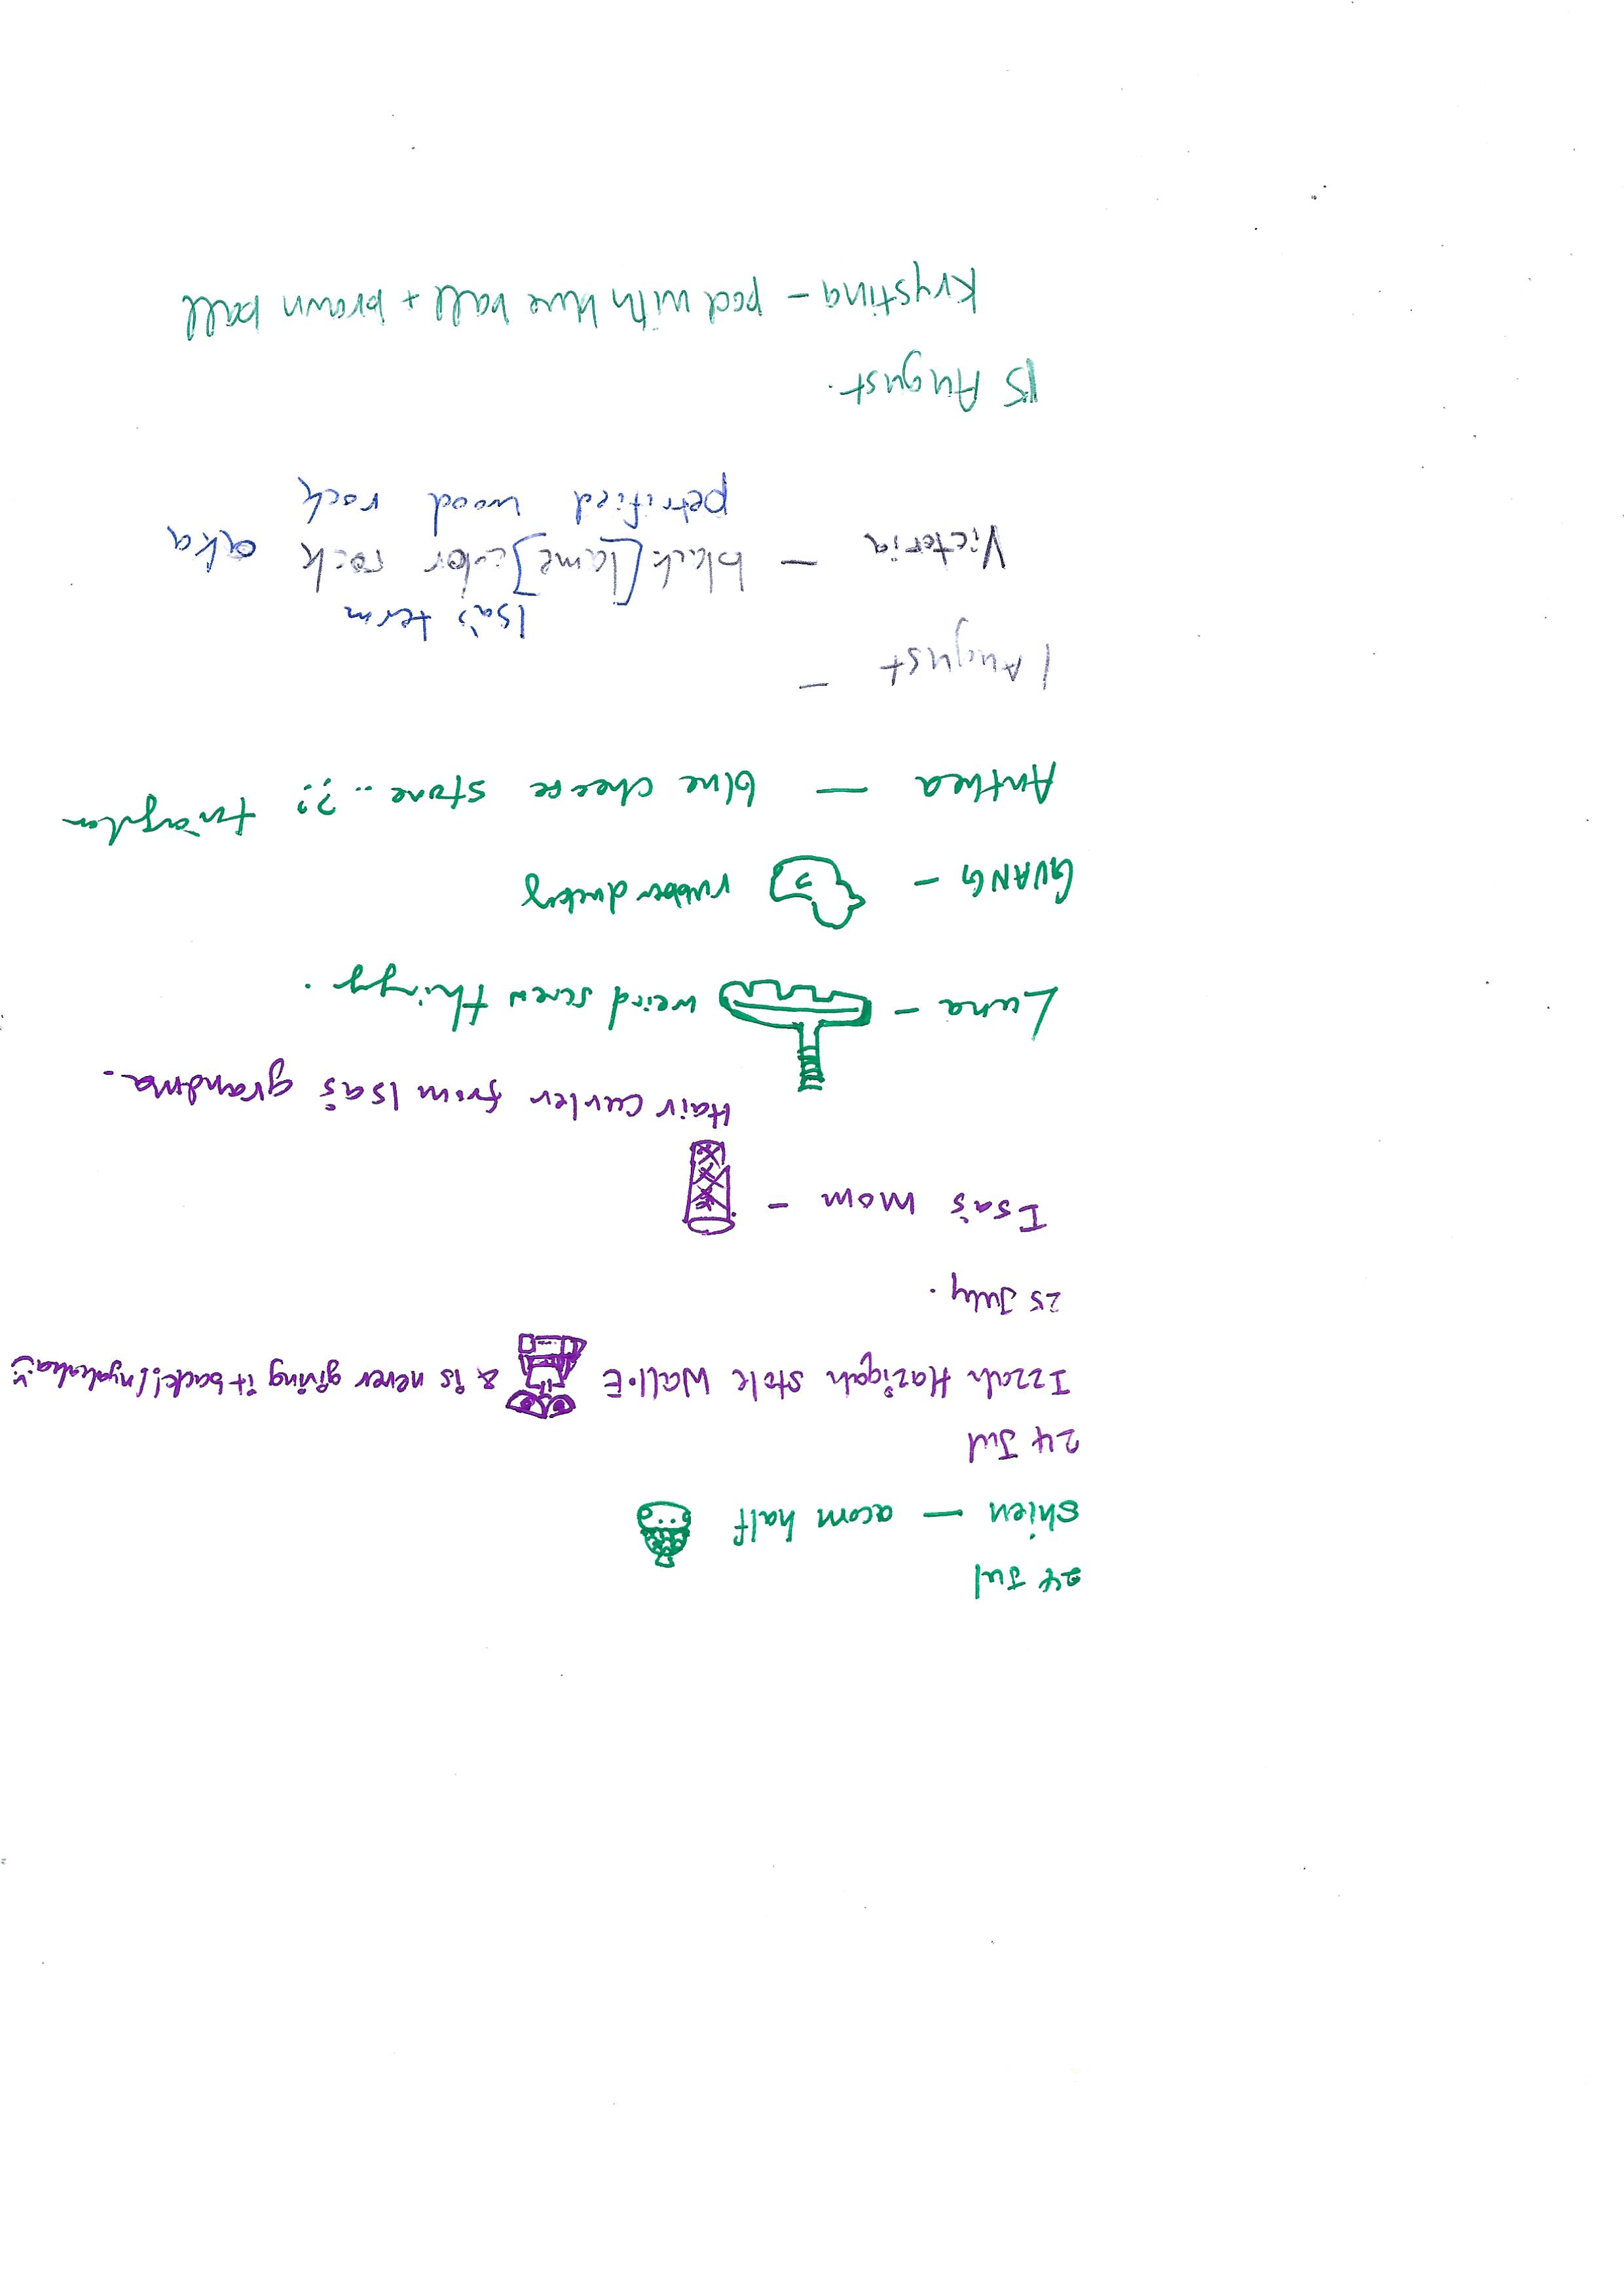 24 Jul
shien — acorn half
24 Jul
Izzah Haziqah stole Wall•E & is never giving it back!! (nyahaha
25 July.
Isa's mom -
Hair curler from Isa's grandma.
Luna - weird screw thingy.
GUANG - rubber ducky
Anthea — blue cheese stone..?? triangular
1 August —
Isa's term
Victoria — black [lame] color rock aka
petrified wood rock
15 August.
Krystina - pod with blue ball + brown ball